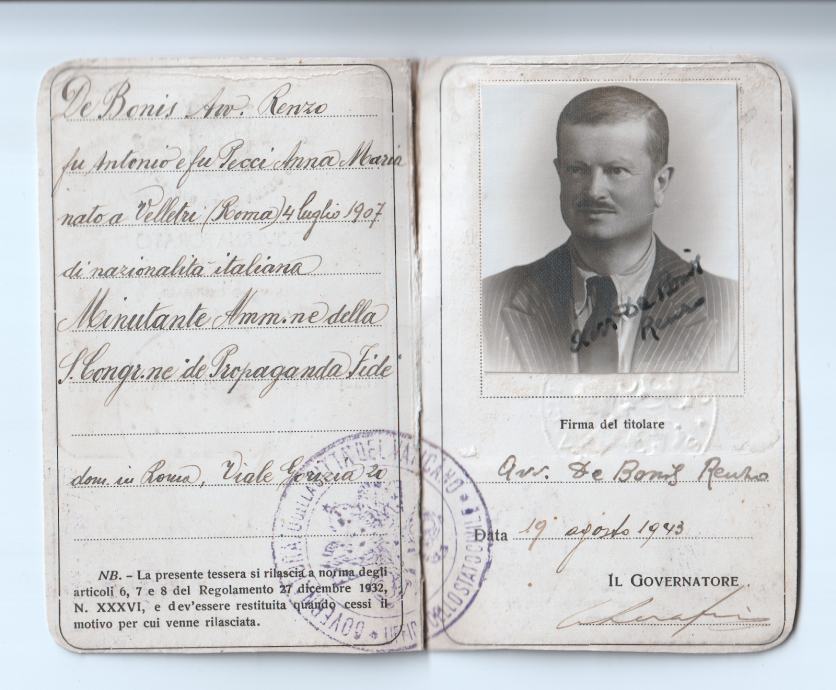 De Bonis Avv. Renzo
fu Antonio e fu Pecci Anna Maria
nato a Velletri (Roma) 4 luglio 1907
di nazionalità italiana
Minutante Amm.ne della
S. Congr.ne de Propaganda Fide
dom. in Roma, Viale Gorizia 20
NB. - La presente tessera si rilascia a norma degli
articoli 6, 7 e 8 del Regolamento 27 dicembre 1932,
N. XXXVI, e dev'essere restituita quando cessi il
motivo per cui venne rilasciata.
Avv. De Bonis
Renzo
Firma del titolare
Avv. De Bonis Renzo
Data 19 agosto 1943
IL GOVERNATORE
Serafini
GOVERNATORATO DELLA CITTÀ DEL VATICANO
UFFICIO DELLO STATO CIVILE